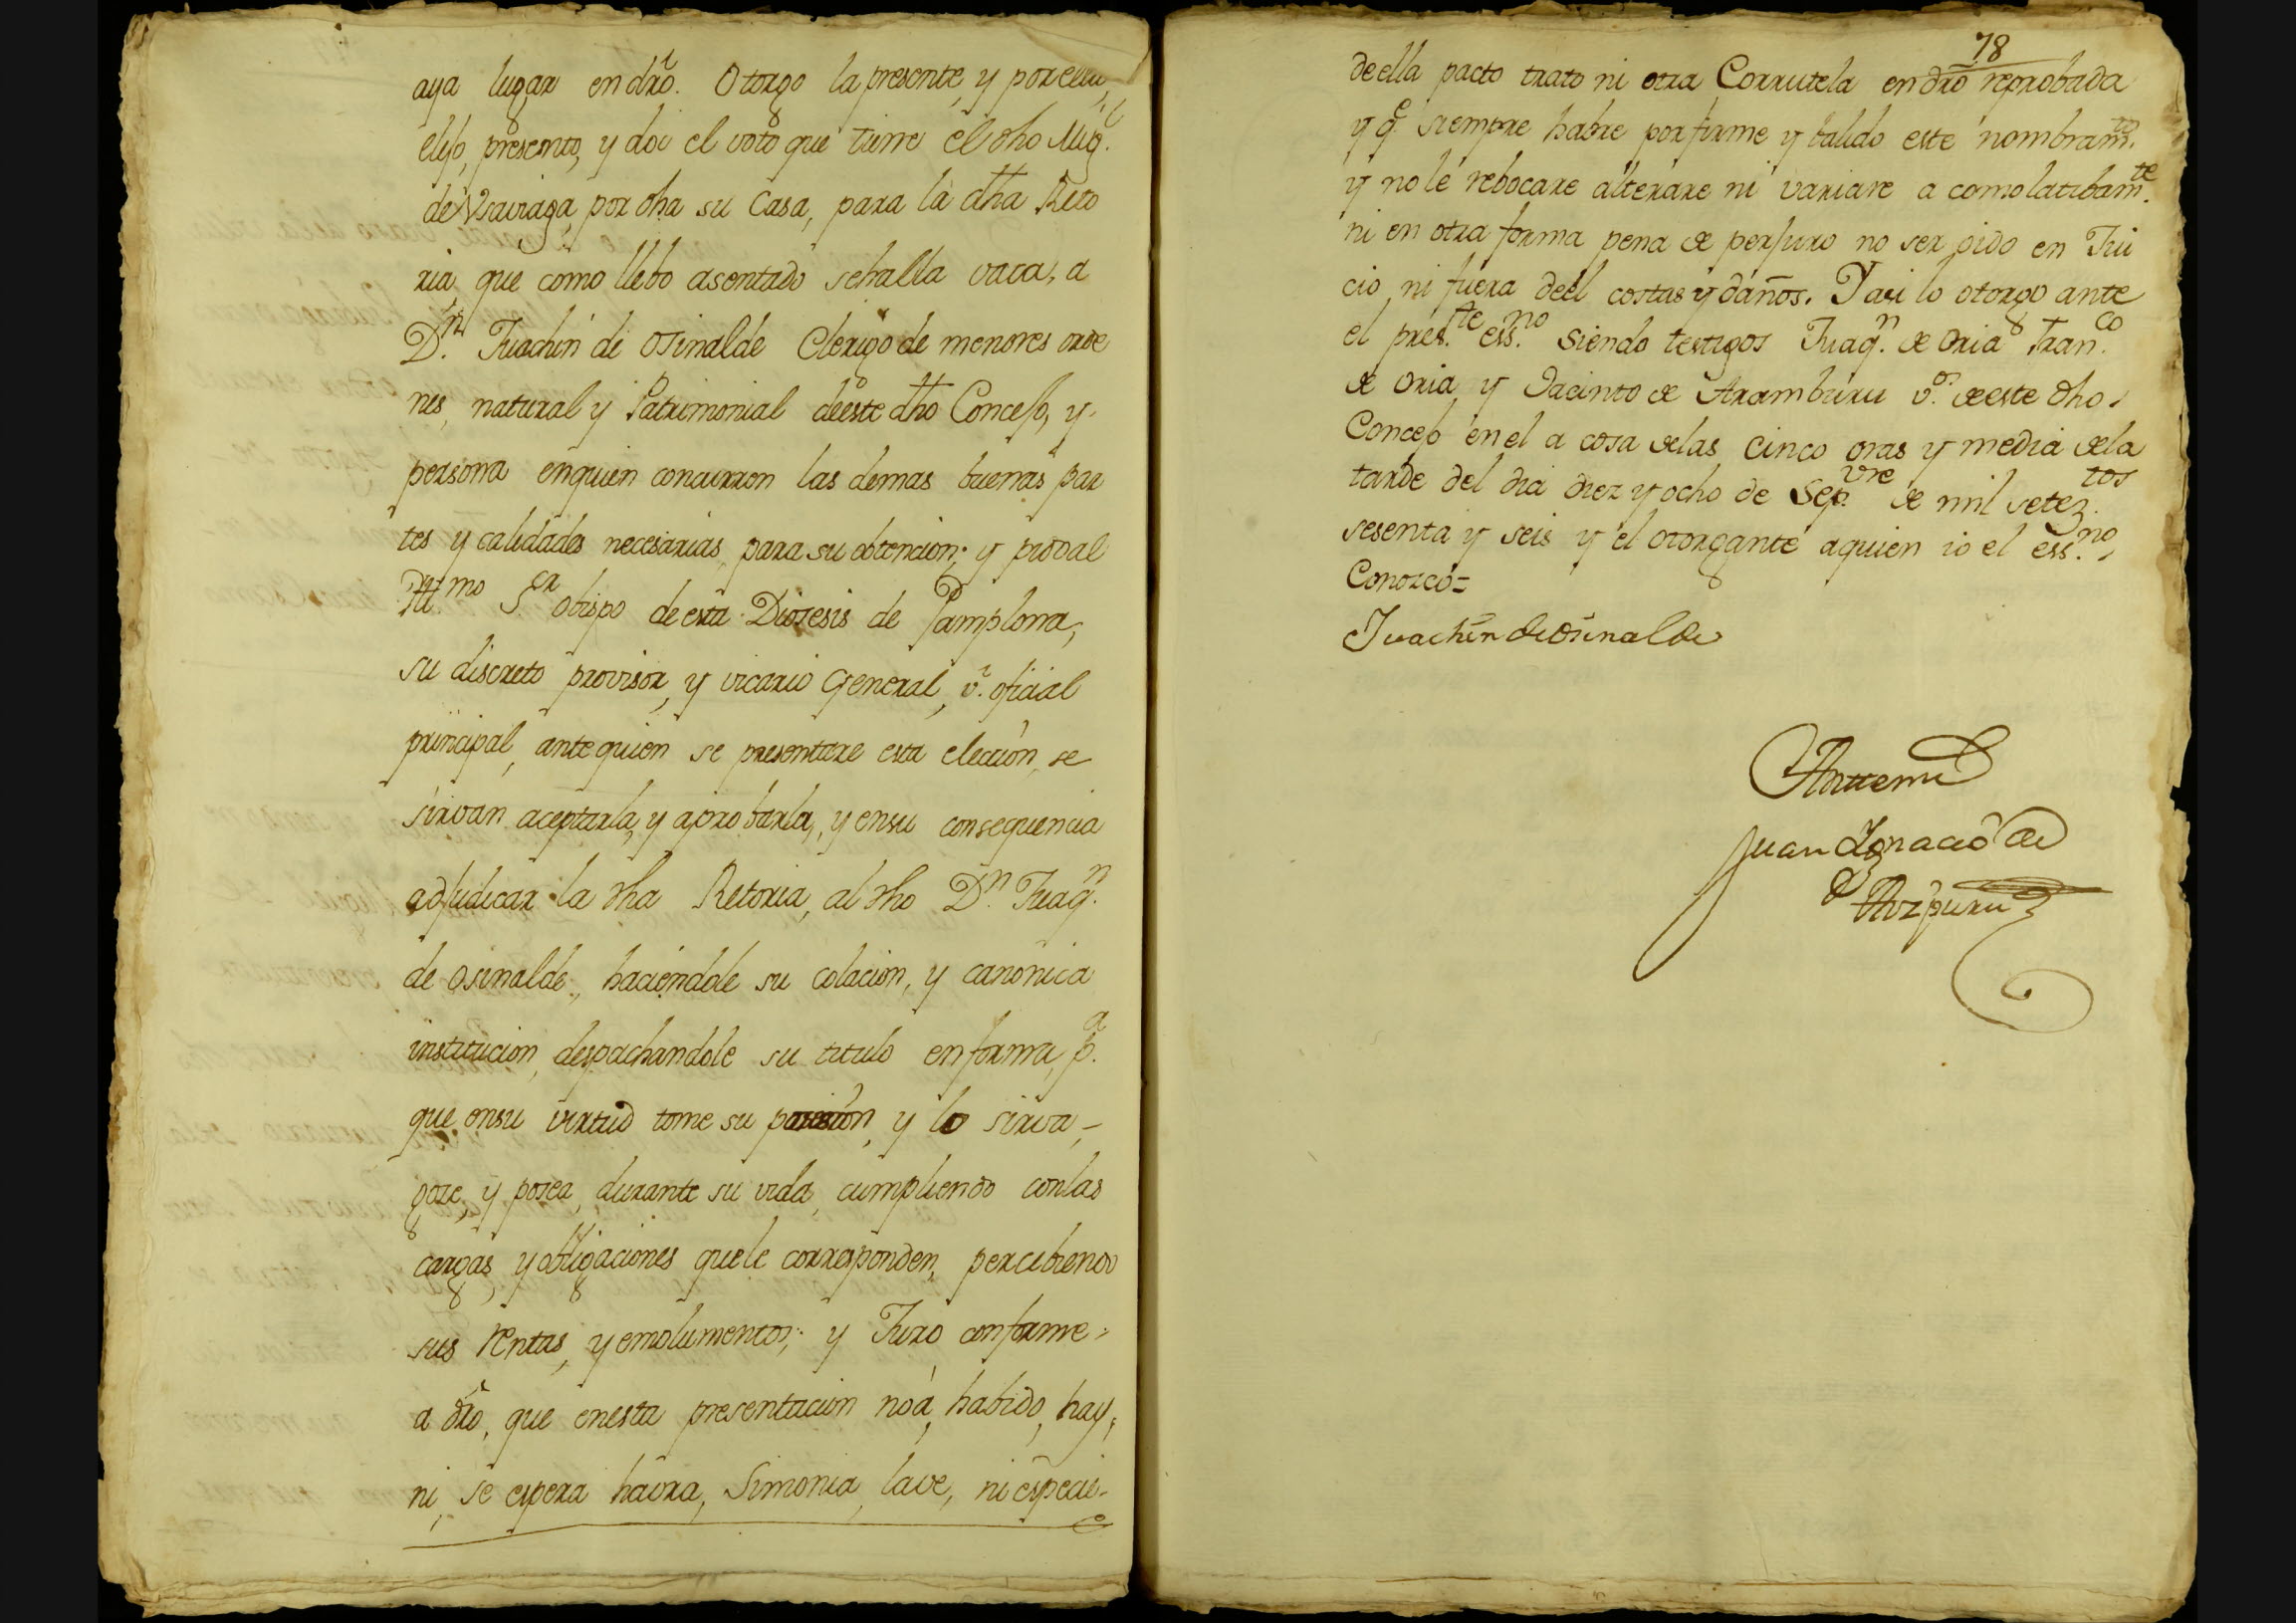 aya lugar en dro. Otorgo la presente, y por ella,
elijo, presento, y doi el voto que tiene el dho Migl.
de Usaviaga, por dha su Casa, para la dha Reto
ria que como llebo asentado sehalla vaca, a
Dn. Juachin de Osinalde Clerigo de menores orde
nes, natural y Patrimonial deeste dho Concejo, y
persona enquien concurren las demas buenas par
tes y calidades necesarias, para su obtencion; y pido al
Illmo Sr Obispo de esta Diozesis de Pamplona,
su discreto provisor, y vicario General, v. oficial
principal, ante quien se presentare esta eleccion, se
sirvan aceptarla, y aprobarla, y ensu consequencia
adjudicar la dha Retoria, al dho Dn. Juaqn.
de Osinalde, haciendole su colacion, y canonica
institucion, despachandole su titulo en forma, pa.
que ensu virtud tome su posesion, y lo sirva,
goze, y posea, durante su vida, cumpliendo conlas
cargas, y obligaciones quele corresponden, percibiendo
sus rentas, y emolumentos; y Juro conforme
a dro, que enesta presentacion no à, habido, hay,
ni, se espera havra, Simonia, lave, ni especie
78
deella pacto trato ni otra Corrutela endro reprobada
y qe siempre habre por firme y balido este nombramto.
y nole rebocare alterare ni variare a como latibamte.
ni en otra forma pena de perjuro no ser oido en Jui
cio, ni fuera deel costas y daños. Y asi lo otorgo ante
el preste. essno. siendo testigos Juaqn. de Oria Franco.
de Oria, y Jacinto de Aramburu vos. deeste dho
Concejo en el a cosa delas cinco oras y media dela
tarde del dia diez y ocho de Sepvre. de mil seteztos.
sesenta y seis y el otorgante aquien io el essno.
Conozco=
Juachin de Osinalde
Antemi
Juan Ignacio de
Aizpuru